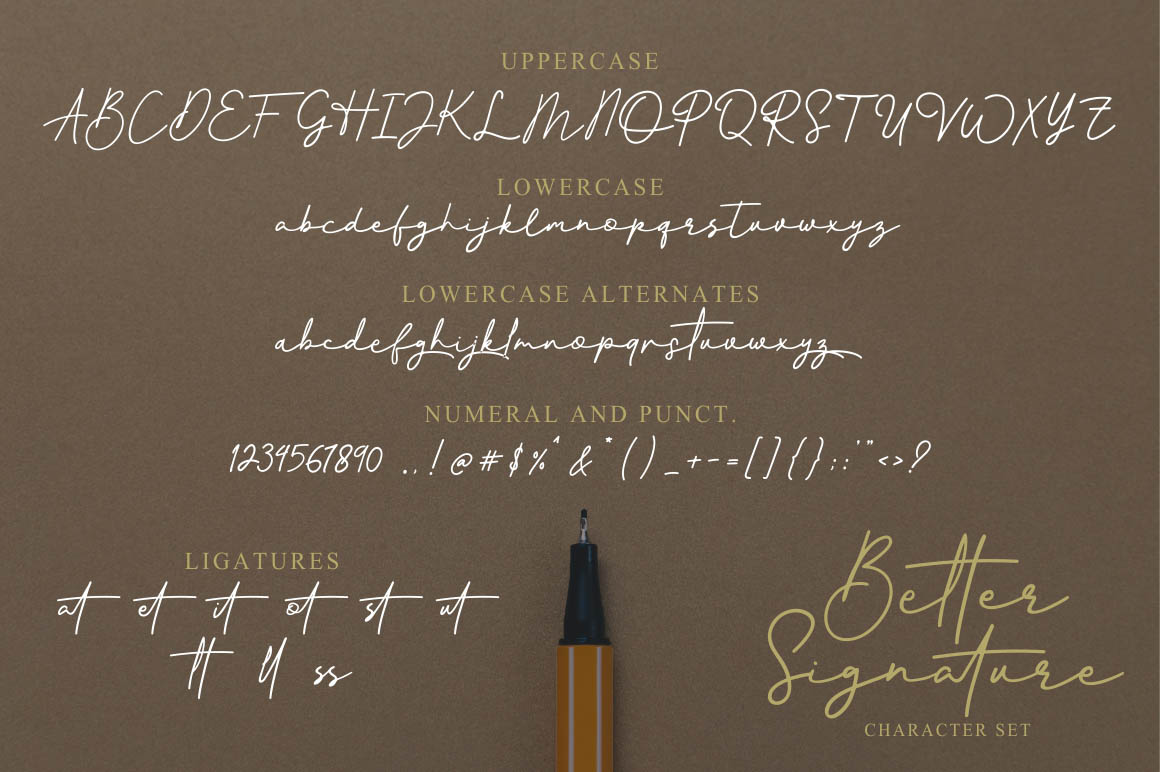 UPPERCASE
ABCDEFGHIJKLMNOPQRSTUVWXYZ
LOWERCASE
abcdefghijklmnopqrstuvwxyz
LOWERCASE ALTERNATES
abcdefghijklmnopqrstuvwxyz
NUMERAL AND PUNCT.
1234567890 .,!@#$%^&*()_+-=[]{};:'"<>?
LIGATURES
at et it ot st ut
tt ll ss
Better
Signature
CHARACTER SET